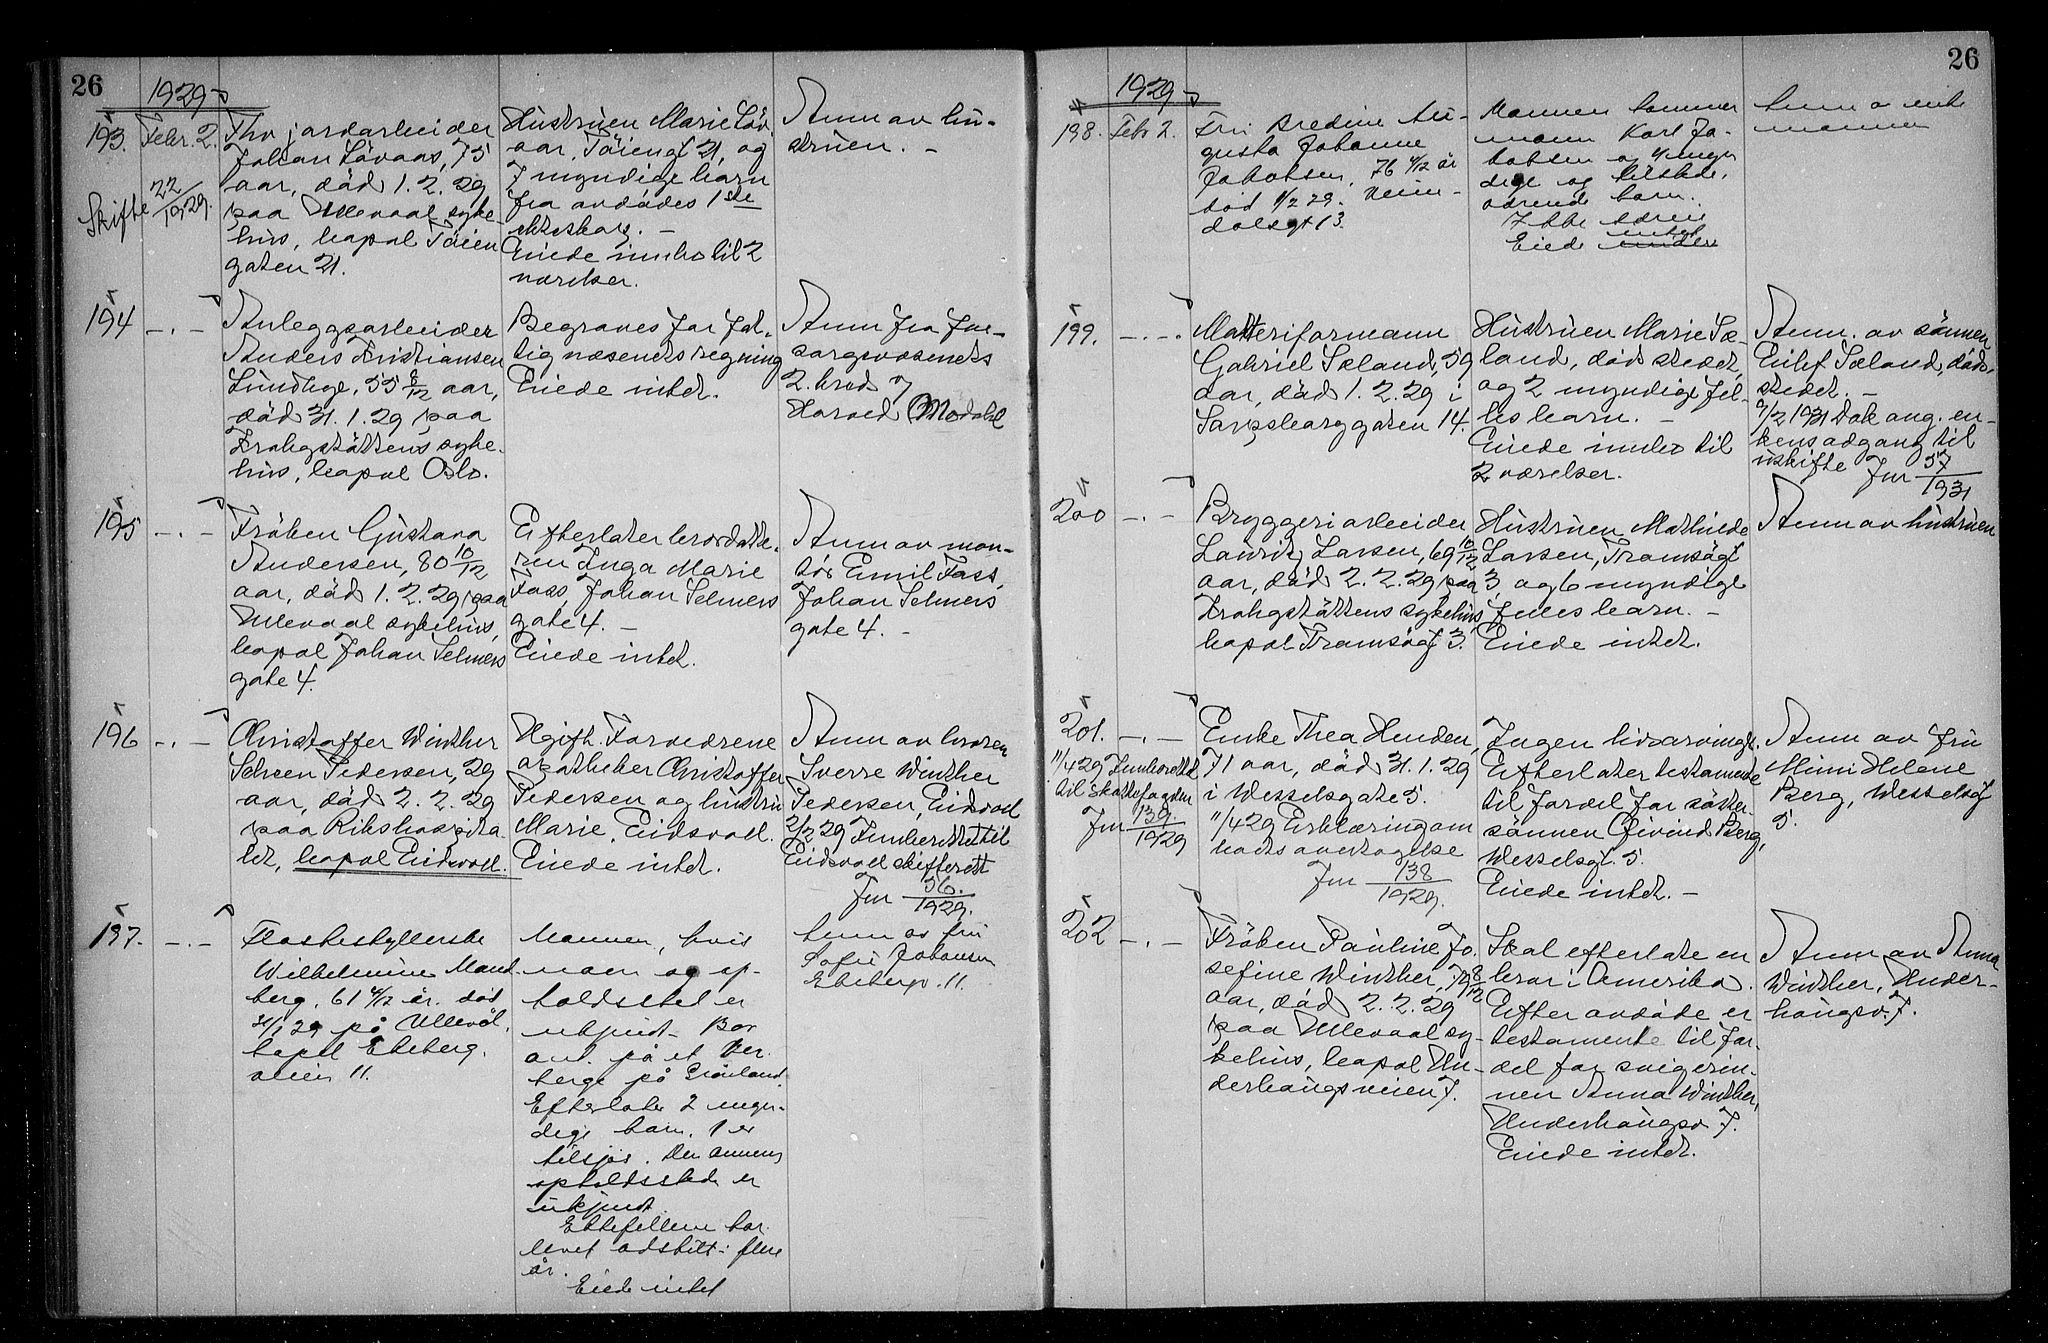 26
1929
193. Febr. 2.
Skifte 22/1929.
Thv. jordarbeider
Johan Lövaas, 75
aar, död 1. 2. 29
paa Ullevaal syke-
hus, bopæl Töien
gaten 21.
Hustruen Marie Löv
aas, Töiengt 21, og
7 myndige barn
fra avdödes 1ste
ekteskap. –
Eiede innbo til 2
værelser.
Anm av hu-
struen. –
194 – . –
Anleggsarbeider
Anders Kristiansen
Lundhge, 55 8/12 aar,
död 31. 1. 29 paa
Krohgstöttens syke-
hus, bopæl Oslo.
Begraves for fat-
tigvæsenets regning
Eiede intet.
Anm fra for-
sorgsvæsenets
2. bred v/
Harved Modahl
195 – . –
Fröken Gustava
Andersen, 80 10/12
aar, död 1. 2. 29 paa
Ullevaal sykehus,
bopæl Johan Selmers
gate 4.
Efterlater brordatte-
ren Inga Marie
Foss, Johan Selmers
gate 4. –
Eiede intet.
Anm av mon-
tör Emil Foss,
Johan Selmers
gate 4. –
196 – . –
Christoffer Winther
Schven Pedersen, 29
aar, död 2. 2. 29
paa Rikshospita
let, bopæl Eidsvoll.
Ugift. Forældrene
apotheker Christoffer
Pedersen og hustru
Marie, Eidsvoll.
Eiede intet.
Anm av broren
Sverre Winther
Pedersen, Eidsvoll
2/2 29 Innberettet til
Eidsvoll skifterett
Jnr 56./1929.
197. – . –
Flaskeskyllerske
Wilhelmine Mand
berg, 61 4/12 år. död
31/1 29 på Ullevål,
bopel Ekeberg-
veien 11.
Mannen, hvis
navn og op-
holdssted er
ukjendt. Bor
ant. på et her-
berge på Grönland.
Efterlater 2 myn-
dige barn. 1 er
tilsjös. Den annens
opholdssted er
ukjendt.
Ektefellene har
levet adskilt i flere
år.
Eiede intet
Anm av fru
Sofie Johansen
Ekebergv. 11.
26
1929
198. Febr 2.
Fru Bredine Au-
gusta Johanne
Jakobsen, 76 4/12 år
död 1/2 29.
dalsgt 13.
Mannen
mann Karl Ja-
kobsen og 4 myn
dige og tilstede-
værende barn.
Ikke særeie
Eiede intet
Anm av enke
mannen
199. – . –
Matteriformann
Gabriel Sæland, 59
aar, död 1. 2. 29 i
Sarpsborggaten 14.
Hustruen Marie Sæ-
land, dödsstedet,
og 2 myndige fel-
les barn. –
Eiede innbo til
2 værelser.
Anm. av sönnen
Eilef Sæland, döds-
stedet. –
9/2 1931 Dok ang. en-
kens adgang til
uskifte Jnr 57/1931
200 – . –
Bryggeriarbeider
Lauritz Larsen, 69 10/12
aar, död 2. 2. 29 paa
Krohgstöttens sykehus,
bopæl Tromsögt 3.
Hustruen Mathilde
Larsen, Tromsögt
3, og 6 myndige
felles barn. –
Eiede intet.
Anm av hustruen
201. – . –
11/4 29 Innberettet
til skattefogden
Jnr 139./1929
Enke Thea Henden,
71 aar, död 31. 1. 29
i Wesselsgate 5.
11/4 29 Erklæring om
boets overtagelse
Jnr 138/1929.
Ingen livsarvinger.
Efterlater testamente
til fordel for söster-
sönnen Öivind Berg,
Wesselsgt. 5.
Eiede intet. –
Anm av fru
Mimi Helene
Berg, Wesselsgt
5.
202 – . –
Fröken Pauline Jo-
sefine Winther, 79 8/12
aar, död 2. 2. 29
paa Ullevaal sy-
kehus, bopæl Un-
derhaugsveien 7.
Skal efterlate en
bror i Amerika.
Efter avdöde er
testamente til for-
del for svigerin-
nen Anna Winther,
Underhaugsv. 7.
Eiede intet.
Anm av Anna
Winther, Under-
haugsv. 7.